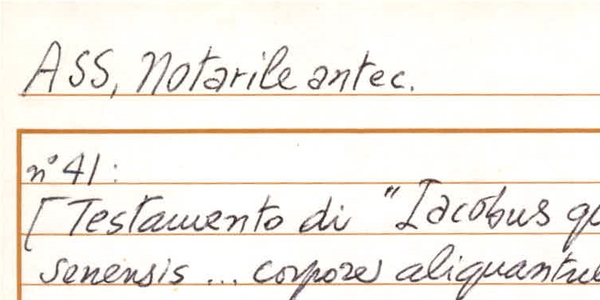 ASS, Notarile antec.
n° 41:
[Testamento di "Iacobus
senensis ... corpore